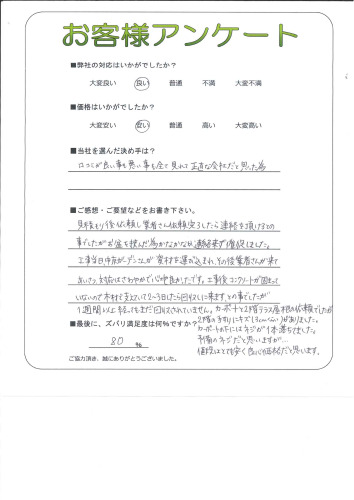 お客様アンケート
■弊社の対応はいかがでしたか?
大変良い 良い 普通 不満 大変不満
■価格はいかがでしたか?
大変安い 安い 普通 高い 大変高い
■当社を選んだ決め手は?
口コミが良い事も悪い事も全て見れて正直な会社だと思った為
■ご感想・ご要望などをお書き下さい。
見積もり後依頼し業者さん依頼完了したら連絡を頂けるとの
事でしたがお盆を挟んだ為かなかなか連絡来ず催促しました。
工事当日中古がダンこが 資材を運び込まれ、その後業者さんが来て
あいさつ、対応はさわやかで心地良かったです。工事後コンクリートが固まって
いないので木材で支えていて2〜3日したら回収しに来ます。との事でしたが
1週間以上経ってもまだ回収されていません。カーポートと2階テラス屋根の依頼でしたが
2階の手すりにキズ(3cmくらい)がありました。
カーポートの下にはネジが1本落ちてました。
予備のネジだと思いますが…
値段はとても安く良心価格だと思います。
■最後に、ズバリ満足度は何%ですか?
80 %
ご協力頂き、誠にありがとうございました。